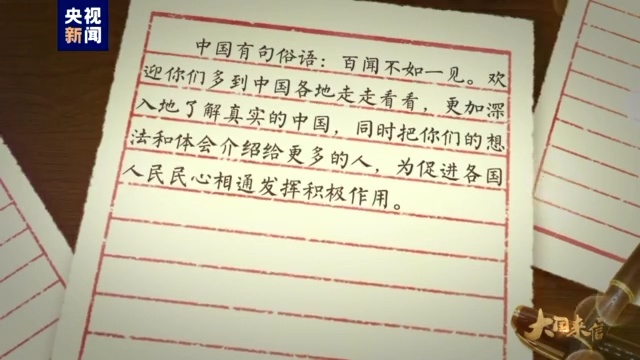 央视
新闻
中国有句俗语：百闻不如一见。欢
迎你们多到中国各地走走看看，更加深
入地了解真实的中国，同时把你们的想
法和体会介绍给更多的人，为促进各国
人民民心相通发挥积极作用。
大国来信